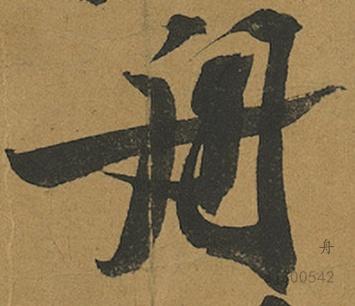 舟
舟
00542